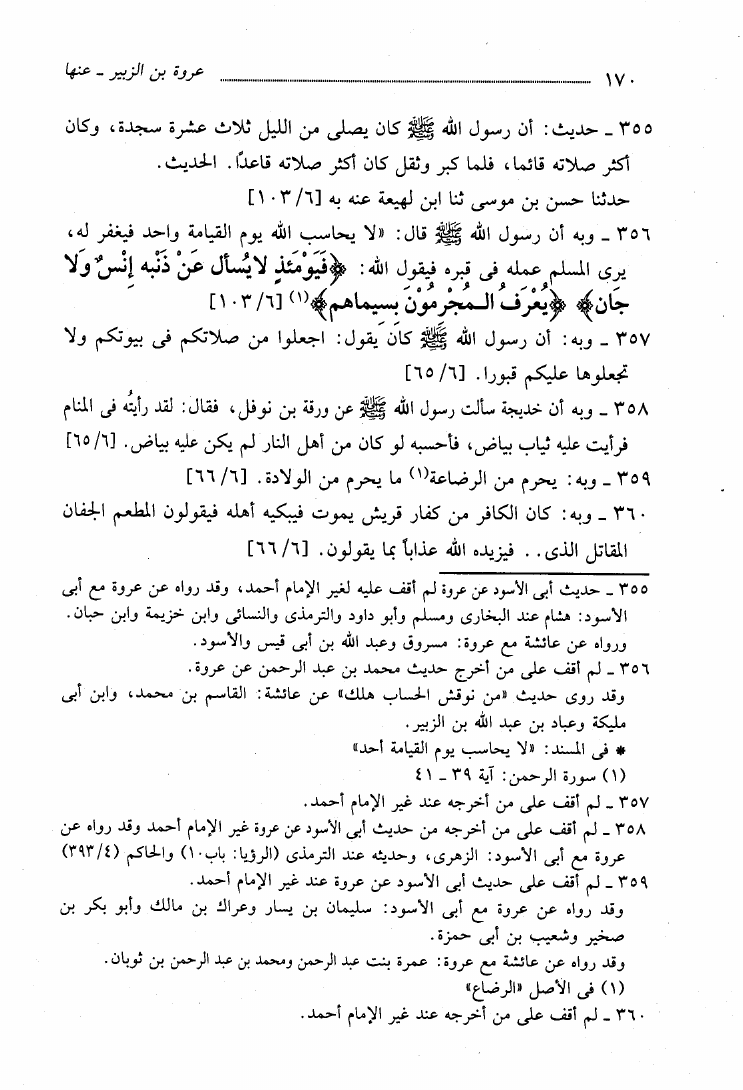 ١٧٠ عروة بن الزبير ـ عنها
٣٥٥ ـ حديث: أن رسول الله ﷺ كان يصلى من الليل ثلاث عشرة سجدة، وكان
أكثر صلاته قائما، فلما كبر وثقل كان أكثر صلاته قاعدًا. الحديث.
حدثنا حسن بن موسى ثنا ابن لهيعة عنه به [٦/ ١٠٣]
٣٥٦ ـ وبه أن رسول الله ﷺ قال: «لا يحاسب الله يوم القيامة واحد فيغفر له،
يرى المسلم عمله فى قبره فيقول الله: ﴿فَيَوْمَئذٍ لا يُسأل عَنْ ذَنْبه إنْسٌ وَلا
جَان﴾ ﴿يُعْرَفُ الـمُجْرِمُوْنَ بِسِيمَاهم﴾(١) [٦/ ١٠٣]
٣٥٧ ـ وبه: أن رسول الله ﷺ كان يقول: اجعلوا من صلاتكم فى بيوتكم ولا
تجعلوها عليكم قبورا. [٦/ ٦٥]
٣٥٨ ـ وبه أن خديجة سألت رسول الله ﷺ عن ورقة بن نوفل، فقال: لقد رأيتُه فى المنام
فرأيت عليه ثياب بياض، فأحسبه لو كان من أهل النار لم يكن عليه بياض. [٦/ ٦٥]
٣٥٩ ـ وبه: يحرم من الرضاعة(١) ما يحرم من الولادة. [٦/ ٦٦]
٣٦٠ ـ وبه: كان الكافر من كفار قريش يموت فيبكيه أهله فيقولون المطعم الجفان
المقاتل الذى.. فيزيده الله عذاباً بما يقولون. [٦/ ٦٦]
٣٥٥ ـ حديث أبى الأسود عن عروة لم أقف عليه لغير الإمام أحمد، وقد رواه عن عروة مع أبى
الأسود: هشام عند البخارى ومسلم وأبو داود والترمذى والنسائى وابن خزيمة وابن حبان.
ورواه عن عائشة مع عروة: مسروق وعبد الله بن أبى قيس والأسود.
٣٥٦ ـ لم أقف على من أخرج حديث محمد بن عبد الرحمن عن عروة.
وقد روى حديث «من نوقش الحساب هلك» عن عائشة: القاسم بن محمد، وابن أبى
مليكة وعباد بن عبد الله بن الزبير.
* فى المسند: «لا يحاسب يوم القيامة أحد»
(١) سورة الرحمن: آية ٣٩ ـ ٤١
٣٥٧ ـ لم أقف على من أخرجه عند غير الإمام أحمد.
٣٥٨ ـ لم أقف على من أخرجه من حديث أبى الأسود عن عروة غير الإمام أحمد وقد رواه عن
عروة مع أبى الأسود: الزهرى، وحديثه عند الترمذى (الرؤيا: باب١٠) والحاكم (٤/ ٣٩٣)
٣٥٩ ـ لم أقف على حديث أبى الأسود عن عروة عند غير الإمام أحمد.
وقد رواه عن عروة مع أبى الأسود: سليمان بن يسار وعراك بن مالك وأبو بكر بن
صخير وشعيب بن أبى حمزة.
وقد رواه عن عائشة مع عروة: عمرة بنت عبد الرحمن ومحمد بن عبد الرحمن بن ثوبان.
(١) فى الأصل «الرضاع»
٣٦٠ ـ لم أقف على من أخرجه عند غير الإمام أحمد.